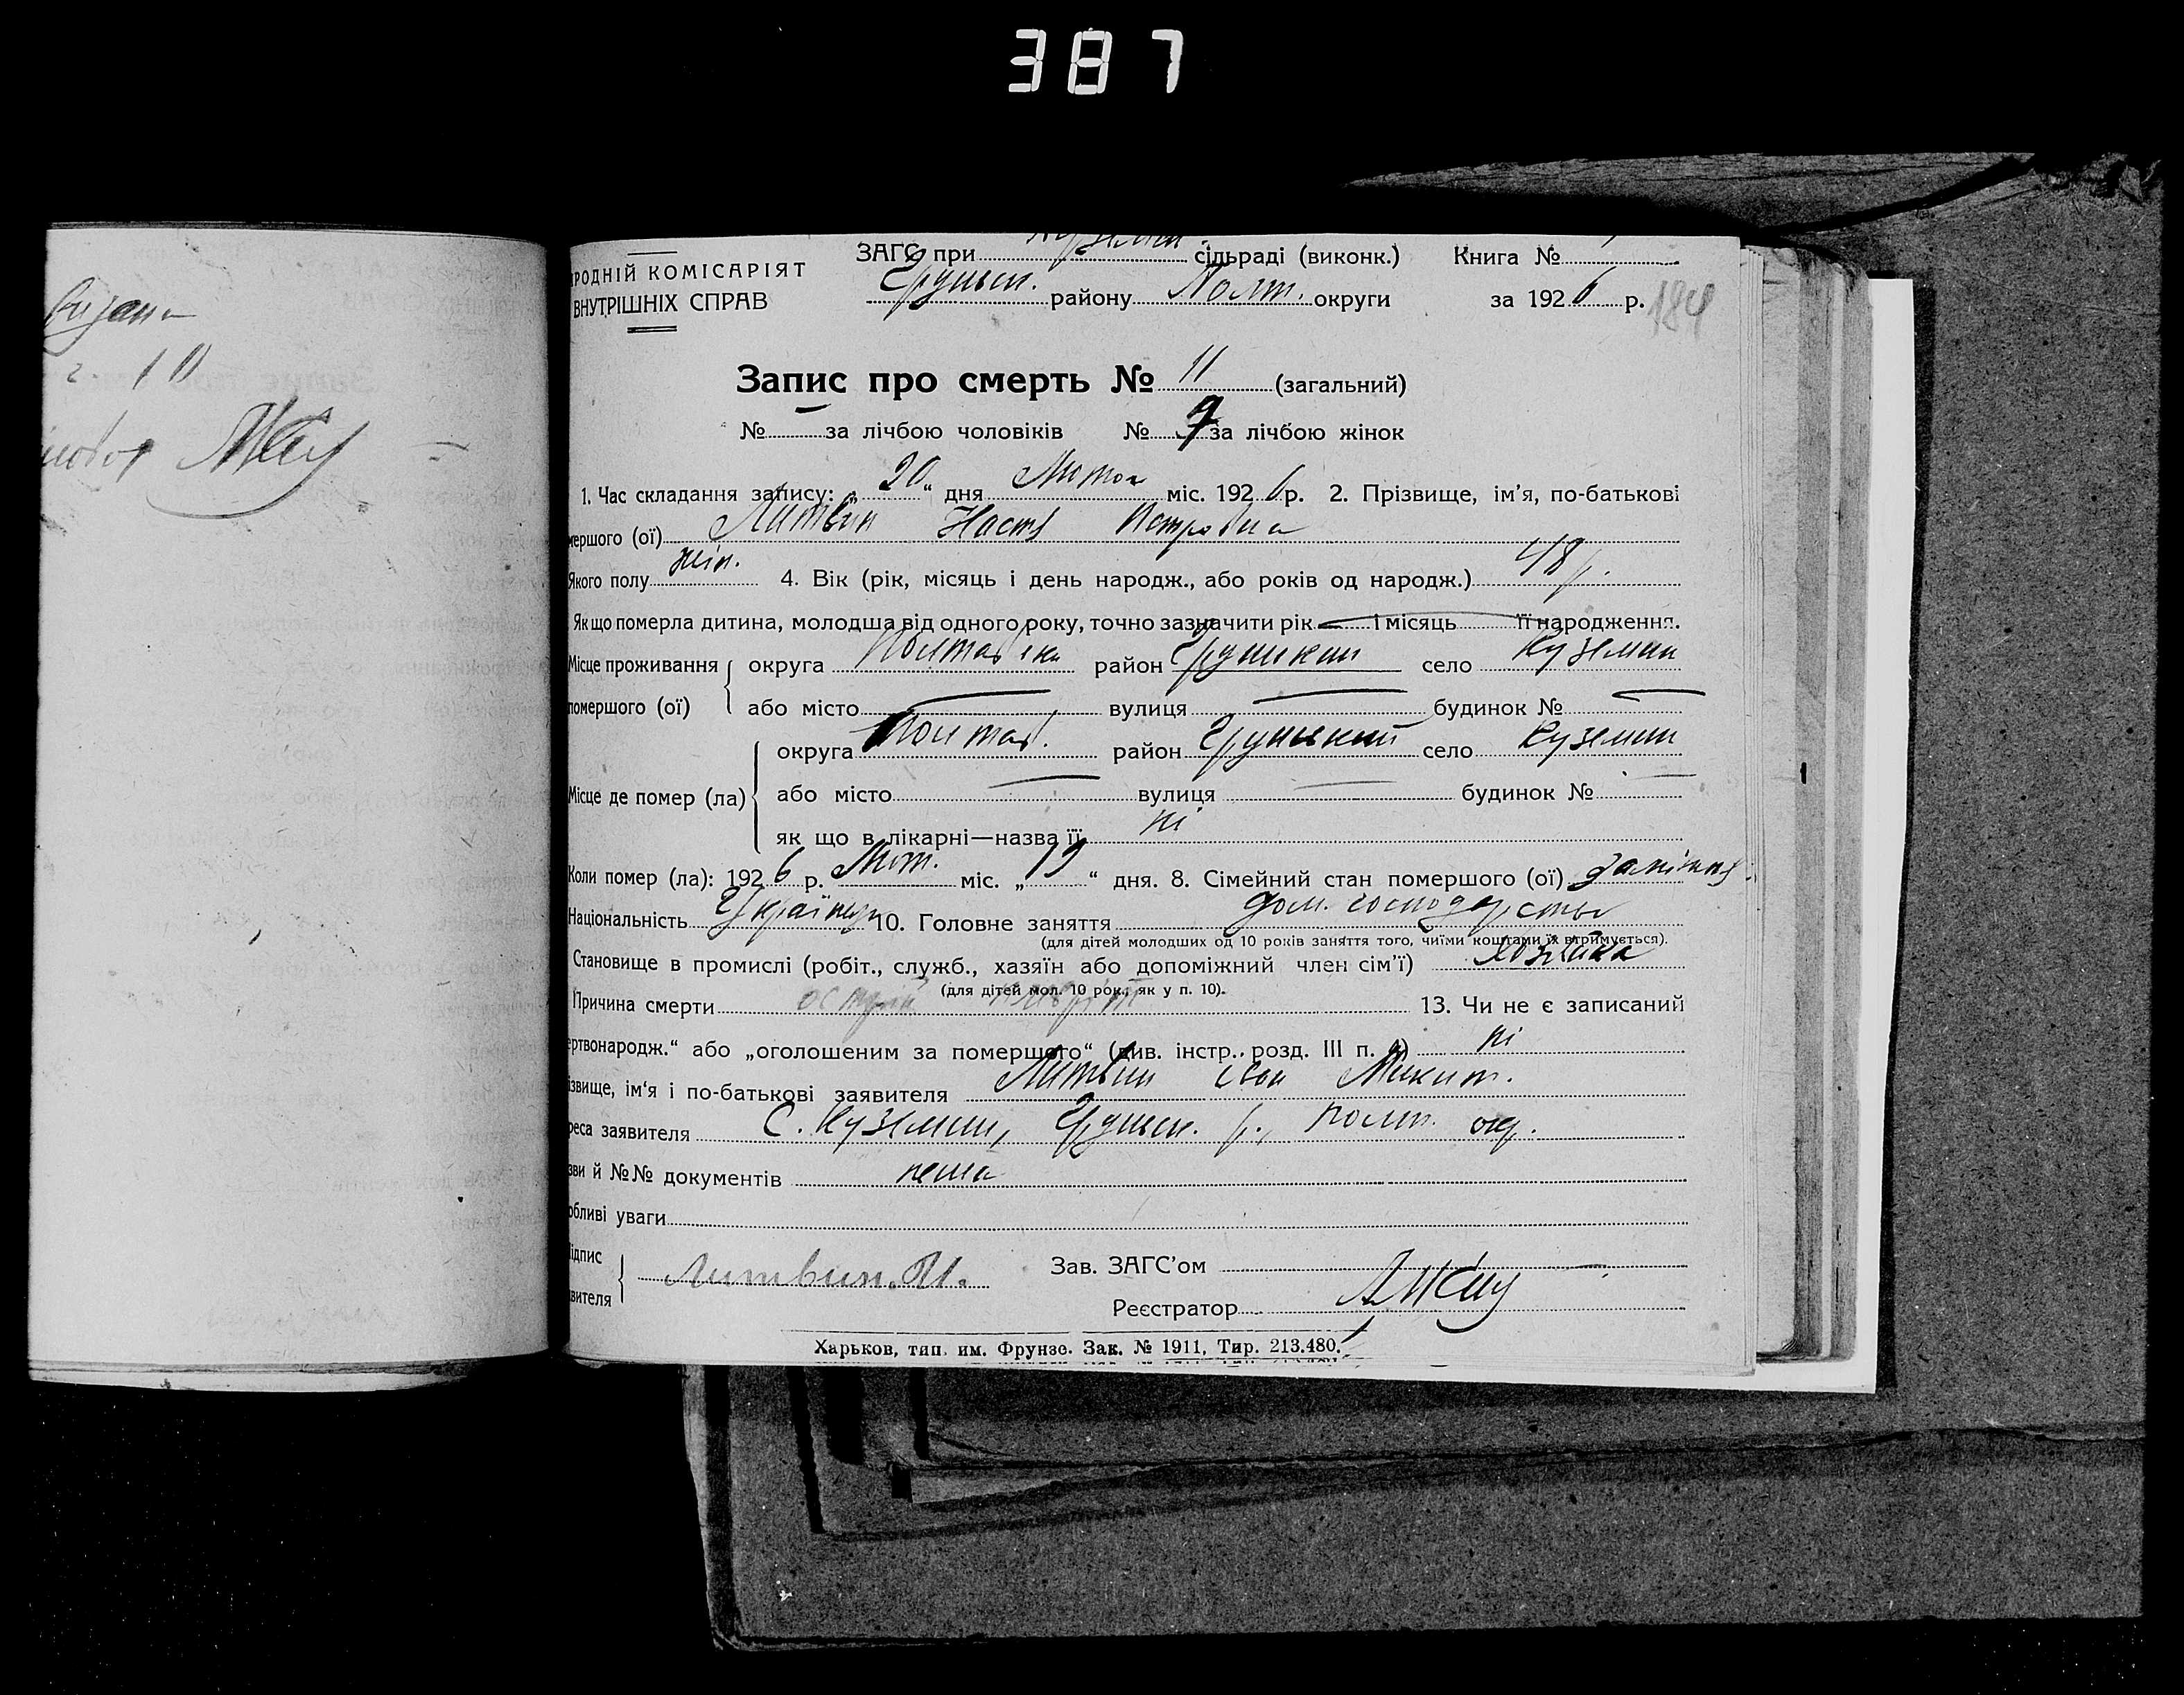 387
видана
РОДНІЙ КОМІСАРІЯТ
ВНУТРІШНІХ СПРАВ
ЗАГС при сільраді (виконк.) Книга №
Груньск. району Полт. округи за 1926 р. 184
Запис про смерть № 11 (загальний)
№ — за лічбою чоловіків № 9 за лічбою жінок
1. Час складання запису: „20“ дня Лютого міс. 1926 р. 2. Прізвище, ім'я, по-батькові
мершого (ої) Литвин Настя Петровна
Якого полу жін. 4. Вік (рік, місяць і день народж., або років од народж.) 48 р.
Як що померла дитина, молодша від одного року, точно зазначити рік — і місяць — її народження.
Місце проживання округа Полтавська район Грунський село Куземин
померш​ого (ої) або місто — вулиця — будинок № —
округа Полтав. район Груньський село Куземин
Місце де помер (ла) або місто — вулиця — будинок № —
як що в лікарні—назва її ні
Коли помер (ла): 1926 р. Лют. міс. „19“ дня. 8. Сімейний стан померш​ого (ої) заміжня
Національність Українка 10. Головне заняття дом. господарство
(для дітей молодших од 10 років заняття того, чиїми коштами їх втримується).
Становище в промислі (робіт., служб., хазяїн або допоміжний член сім'ї) хозяйка
(для дітей мол. 10 рок., як у п. 10).
Причина смерти острий 13. Чи не є записаний
ертвонародж.“ або „оголошеним за померш​ого“ (див. інстр., розд. III п. 4) ні
ізвище, ім'я і по-батькові заявителя Литвин Іван Микит.
реса заявителя С. Куземин, Груньск. р., Полт. окр.
зви й №№ документів нема
обливі уваги
ідпис
явителя Литвин. И. Зав. ЗАГС'ом —
Реєстратор
Харьков, тип. им. Фрунзе. Зак. № 1911, Тир. 213.480.